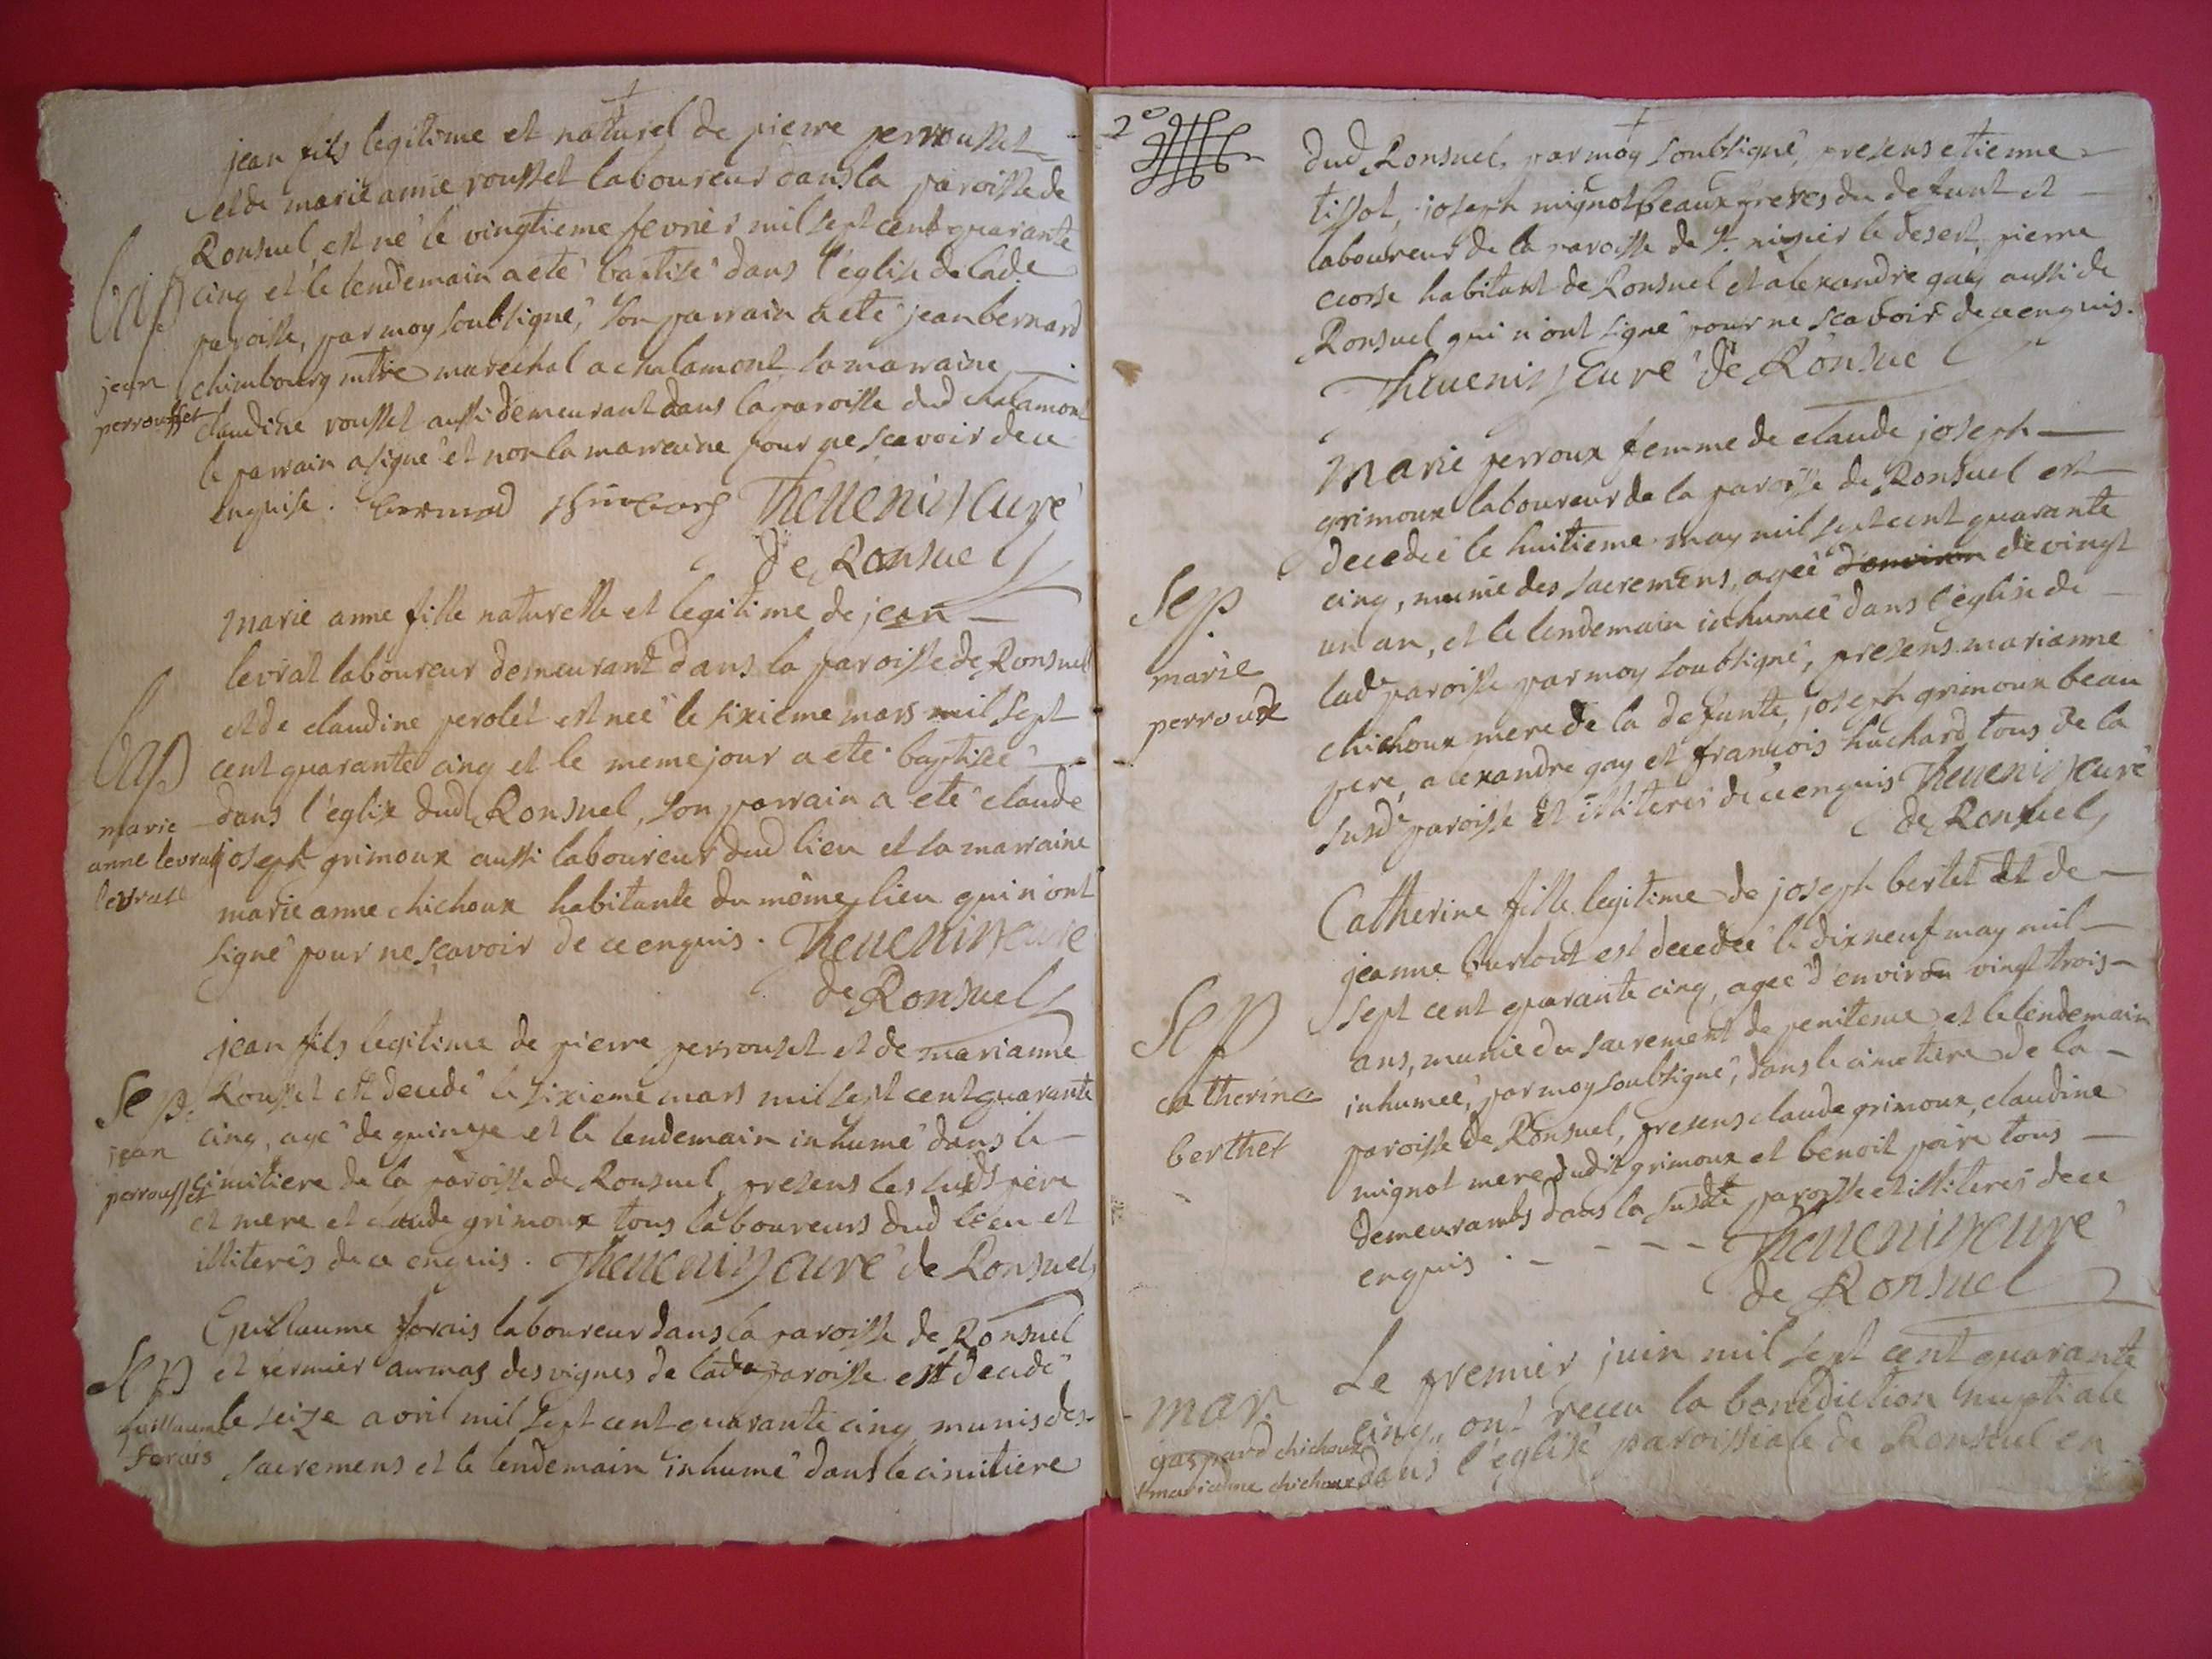 jean fils legitime et naturel de pierre perrousset
et de marie anne rousset laboureur dans la paroisse de
Ronsuel, est né le vingtieme fevrier mil sept cent quarante
Bap
cinq et le lendemain a eté baptisé dans l'église de lade
paroisse, par moy soubsigné, son parrain a eté jean bernard
jean
chimbourg mtre marechal a chalamont la marraine
perrousset
claudine rousset aussi demeurant dans la paroisse dud chalamont
le parrain a signé et non la marraine pour ne scavoir de ce
enquise. Thevenin curé
de Ronsuel
marie anne fille naturelle et legitime de jean
levrat laboureur demeurant dans la paroisse de Ronsuel
et de claudine perolet est neé le sixieme mars mil sept
Bap
cent quarante cinq et le meme jour a eté baptiseé
marie
dans l'église dud Ronsuel, son parrain a eté claude
anne levrat
joseph grimoux aussi laboureur dud lieu et la marraine
levrat
marie anne chichoux habitante du même lieu qui n'ont
signé pour ne sçavoir de ce enquis. Thevenin curé
de Ronsuel
jean fils legitime de pierre perrouset et de marianne
Sep.
Rousset est decedé le sixieme mars mil sept cent quarante
jean
cinq, agé de quinze et le lendemain inhumé dans le
perrousset
cimitiere de la paroisse de Ronsuel, presens les susds père
et mere et claude grimoux tous laboureurs dud lieu et
illiterés de ce enquis. Thevenin curé de Ronsuel
Guillaume forais laboureur dans la paroisse de Ronsuel
Sep
et fermier au mas des vignes de lade paroisse est decedé
guillaume
le seize avril mil sept cent quarante cinq munis des
Forais
sacremens et le lendemain inhumé dans le cimitiere
2e
dud Ronsuel, par moy soubsigné, presens etienne
tissot, joseph mignot beaux freres du defunt et
laboureur de la paroisse de st nizier le desert, pierre
crosse habitant de Ronsuel et alexandre gay aussi de
Ronsuel qui n'ont signé pour ne scavoir de ce enquis.
Thevenin curé de Ronsuel
Marie perroux femme de claude joseph
grimoux laboureur de la paroisse de Ronsuel est
decedeé le huitieme may mil sept cent quarante
Sep.
cinq, munie des sacremens, ageé d'environ de vingt
un an, et le lendemain inhumeé dans l'église de
marie
lade paroisse par moy soubsigné, presens marianne
perroux
chichoux mere de la defunte, joseph grimoux beau
pere, alexandre gay et françois huchard tous de la
susde paroisse et illiterés de ce enquis Thevenin curé
de Ronsuel
Catherine fille legitime de joseph bertet et de
jeanne burlout est decedeé le dix neuf may mil
sept cent quarante cinq, ageé d'environ vingt trois
Sep
ans, munie du sacrement de penitence et le lendemain
catherine
inhumeé, par moy soubsigné, dans le cimetiere de la
berthet
paroisse de Ronsuel, presens claude grimoux, claudine
mignot mere dudit grimoux et benoit poire tous
demeurants dans la susdte paroisse et illiterés de ce
enquis. Thevenin curé
de Ronsuel
Le premier juin mil sept cent quarante
mar.
cinq, ont receu la benediction nuptiale
gaspard chichoux
dans l'église paroissiale de Ronsuel en
marianne chichoux